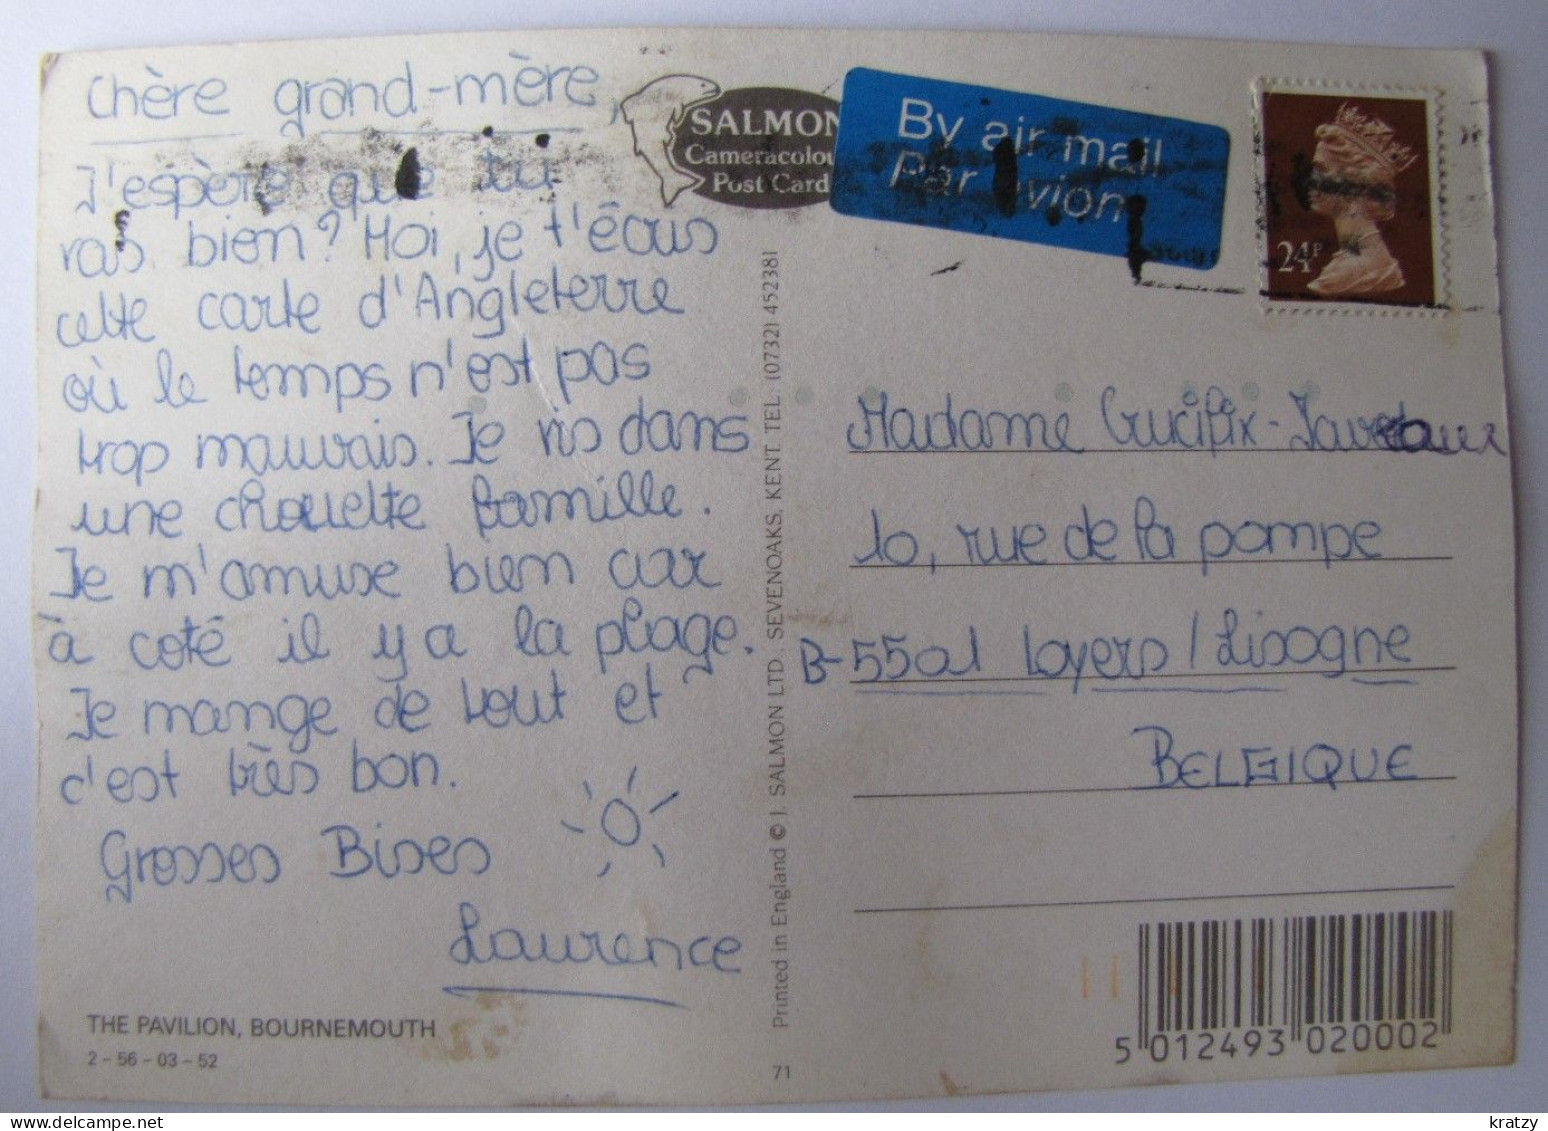 Chère grand-mère,
J'espère que tu
vas bien? Moi, je t'écris
cette carte d'Angleterre
où le temps n'est pas
trop mauvais. Je vis dans
une chouette famille.
Je m'amuse bien car
à coté il y a la plage.
Je mange de tout et
c'est très bon.
Grosses Bises
Laurence
THE PAVILION, BOURNEMOUTH
2-56-03-52
SALMON
Cameracolou
Post Card
By air mail
Par avion
24P
Printed in England © J. SALMON LTD. SEVENOAKS, KENT. TEL: (0732) 452381
71
Madame Crucifix-
10, rue de la pompe
B-5501 Loyers / Lisogne
BELGIQUE
5 012493 020002
kratzy